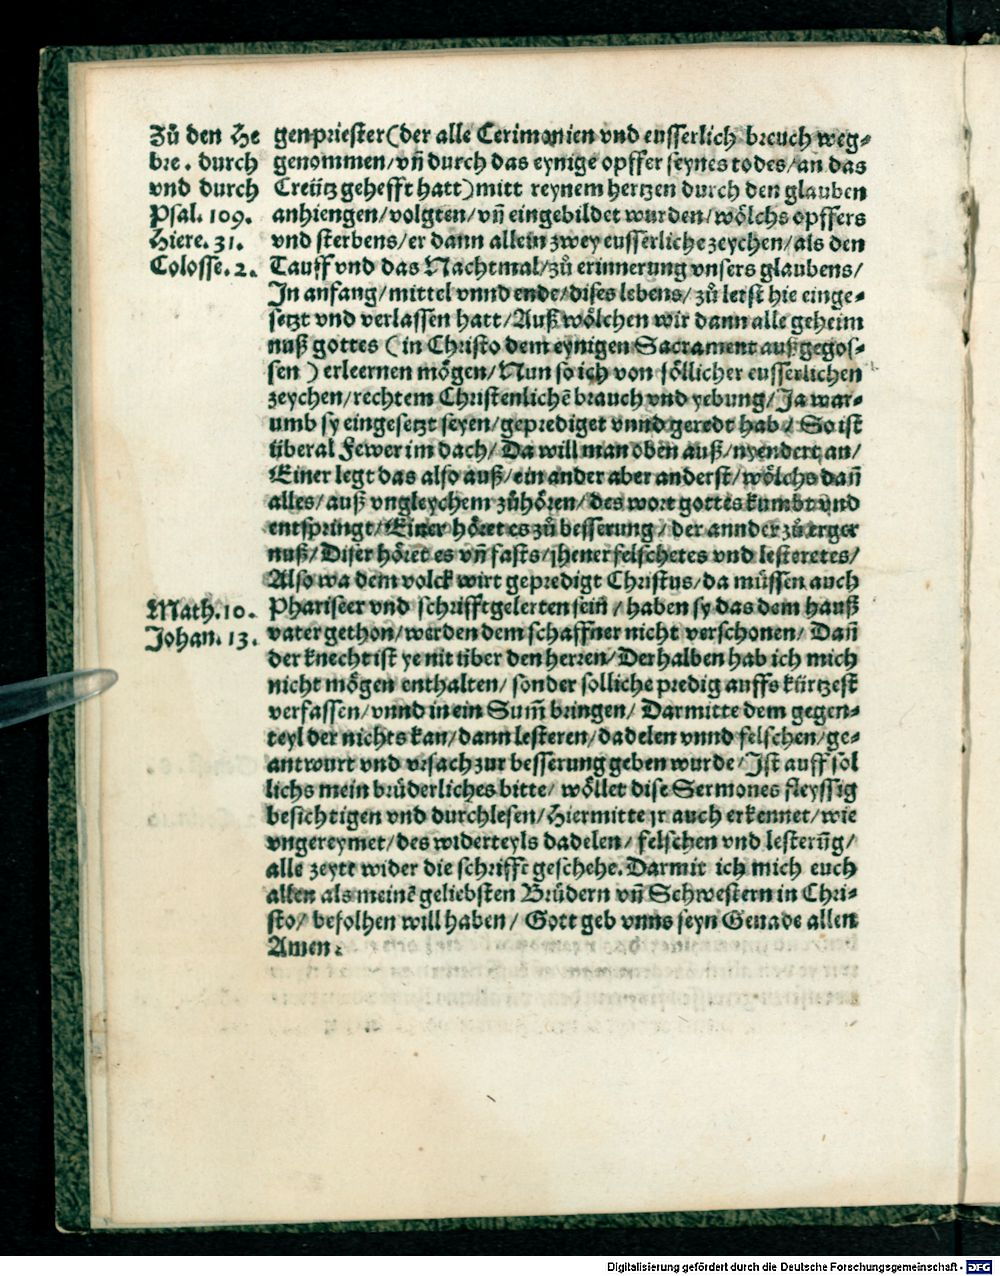 Zů den He
bre. durch
vnd durch
Psal. 109.
Hiere. 31.
Colosse. 2.
genpriester (der alle Cerimonien vnd eusserlich breuch weg⸗
genommen/ vñ durch das eynige opffer seynes todes/ an das
Creütz gehefft hatt) mitt reynem hertzen durch den glauben
anhiengen/ volgten/ vñ eingebildet wurden/ wölchs opffers
vnd sterbens/ er dann allein zwey eusserliche zeychen/ als den
Tauff vnd das Nachtmal/ zů erinnerung vnsers glaubens/
In anfang/ mittel vnnd ende/ dises lebens/ zů letst hie einge⸗
setzt vnd verlassen hatt/ Auß wölchen wir dann alle geheim
nuß gottes (in Christo dem eynigen Sacrament außgegos⸗
sen) erleernen mögen/ Nun so ich von söllicher eusserlichen
zeychen/ rechtem Christenlichē brauch vnd yebung/ Ja war⸗
umb sy eingesetzt seyen/ geprediget vnnd geredt hab/ So ist
überal Fewer im dach/ Da will man oben auß/ nyendert an/
Einer legt das also auß/ ein ander aber anderst/ wölchs dañ
alles/ auß vngleychem zůhören/ des wort gottes kumbt vnd
entspringt/ Einer höret es zů besserung/ der annder zů erger
nuß/ Diser höret es vñ fasts/ jhener felschetes vnd lesteretes/
Also wa dem volck wirt gepredigt Christus/ da müssen auch
Math. 10.
Johan. 13.
Phariseer vnd schrifftgelerten sein̄/ haben sy das dem hauß
vater gethon/ werden dem schaffner nicht verschonen/ Dañ
der knecht ist ye nit über den herren/ Derhalben hab ich mich
nicht mögen enthalten/ sonder solliche predig auffs kürtzest
verfassen/ vnnd in ein Sum̄ bringen/ Darmitte dem gegen⸗
teyl der nichts kan/ dann lesteren/ dadelen vnnd felschen/ ge⸗
antwurt vnd vrsach zur besserung geben wurde/ Ist auff sol
lichs mein brüderliches bitte/ wöllet dise Sermones fleyssig
besichtigen vnd durchlesen/ Hiermitte jr auch erkennet/ wie
vngereymet/ des widerteyls dadelen/ felschen vnd lesterūg/
alle zeytt wider die schrifft geschehe. Darmit ich mich euch
allen als meinē geliebsten Brüdern vñ Schwestern in Chri⸗
sto/ befolhen will haben/ Gott geb vnns seyn Genade allen
Amen.
Digitalisierung gefördert durch die Deutsche Forschungsgemeinschaft - DFG